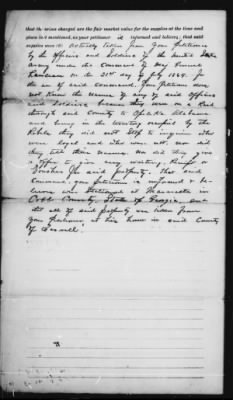 that the prices charged are the fair market value for the supplies at the time and
place it is mentioned, as your petitioner is informed and believes; that said
supplies were actually taken from Your Petitioner
by the officers and Soldiers of the United States
Army under the command of
on the 21st day of July 1864. for
the use of said command. Your petitioner does
not know the names of any of said Officers
and Soldiers because they were on a Raid
through said County to Opelika Alabama
and being in the Country occupied by the
Rebels they did not stop to inquire who
were loyal and who were not, nor did
they tell their names. Nor did they give
or offer to give any writing, Receipt or
Voucher for said property. That said
command, your petitioner is informed & be-
lieves was Stationed at Marietta in
Cobb County, State of Georgia, and
that all of said property was taken from
Your petitioner at his home in said County
of